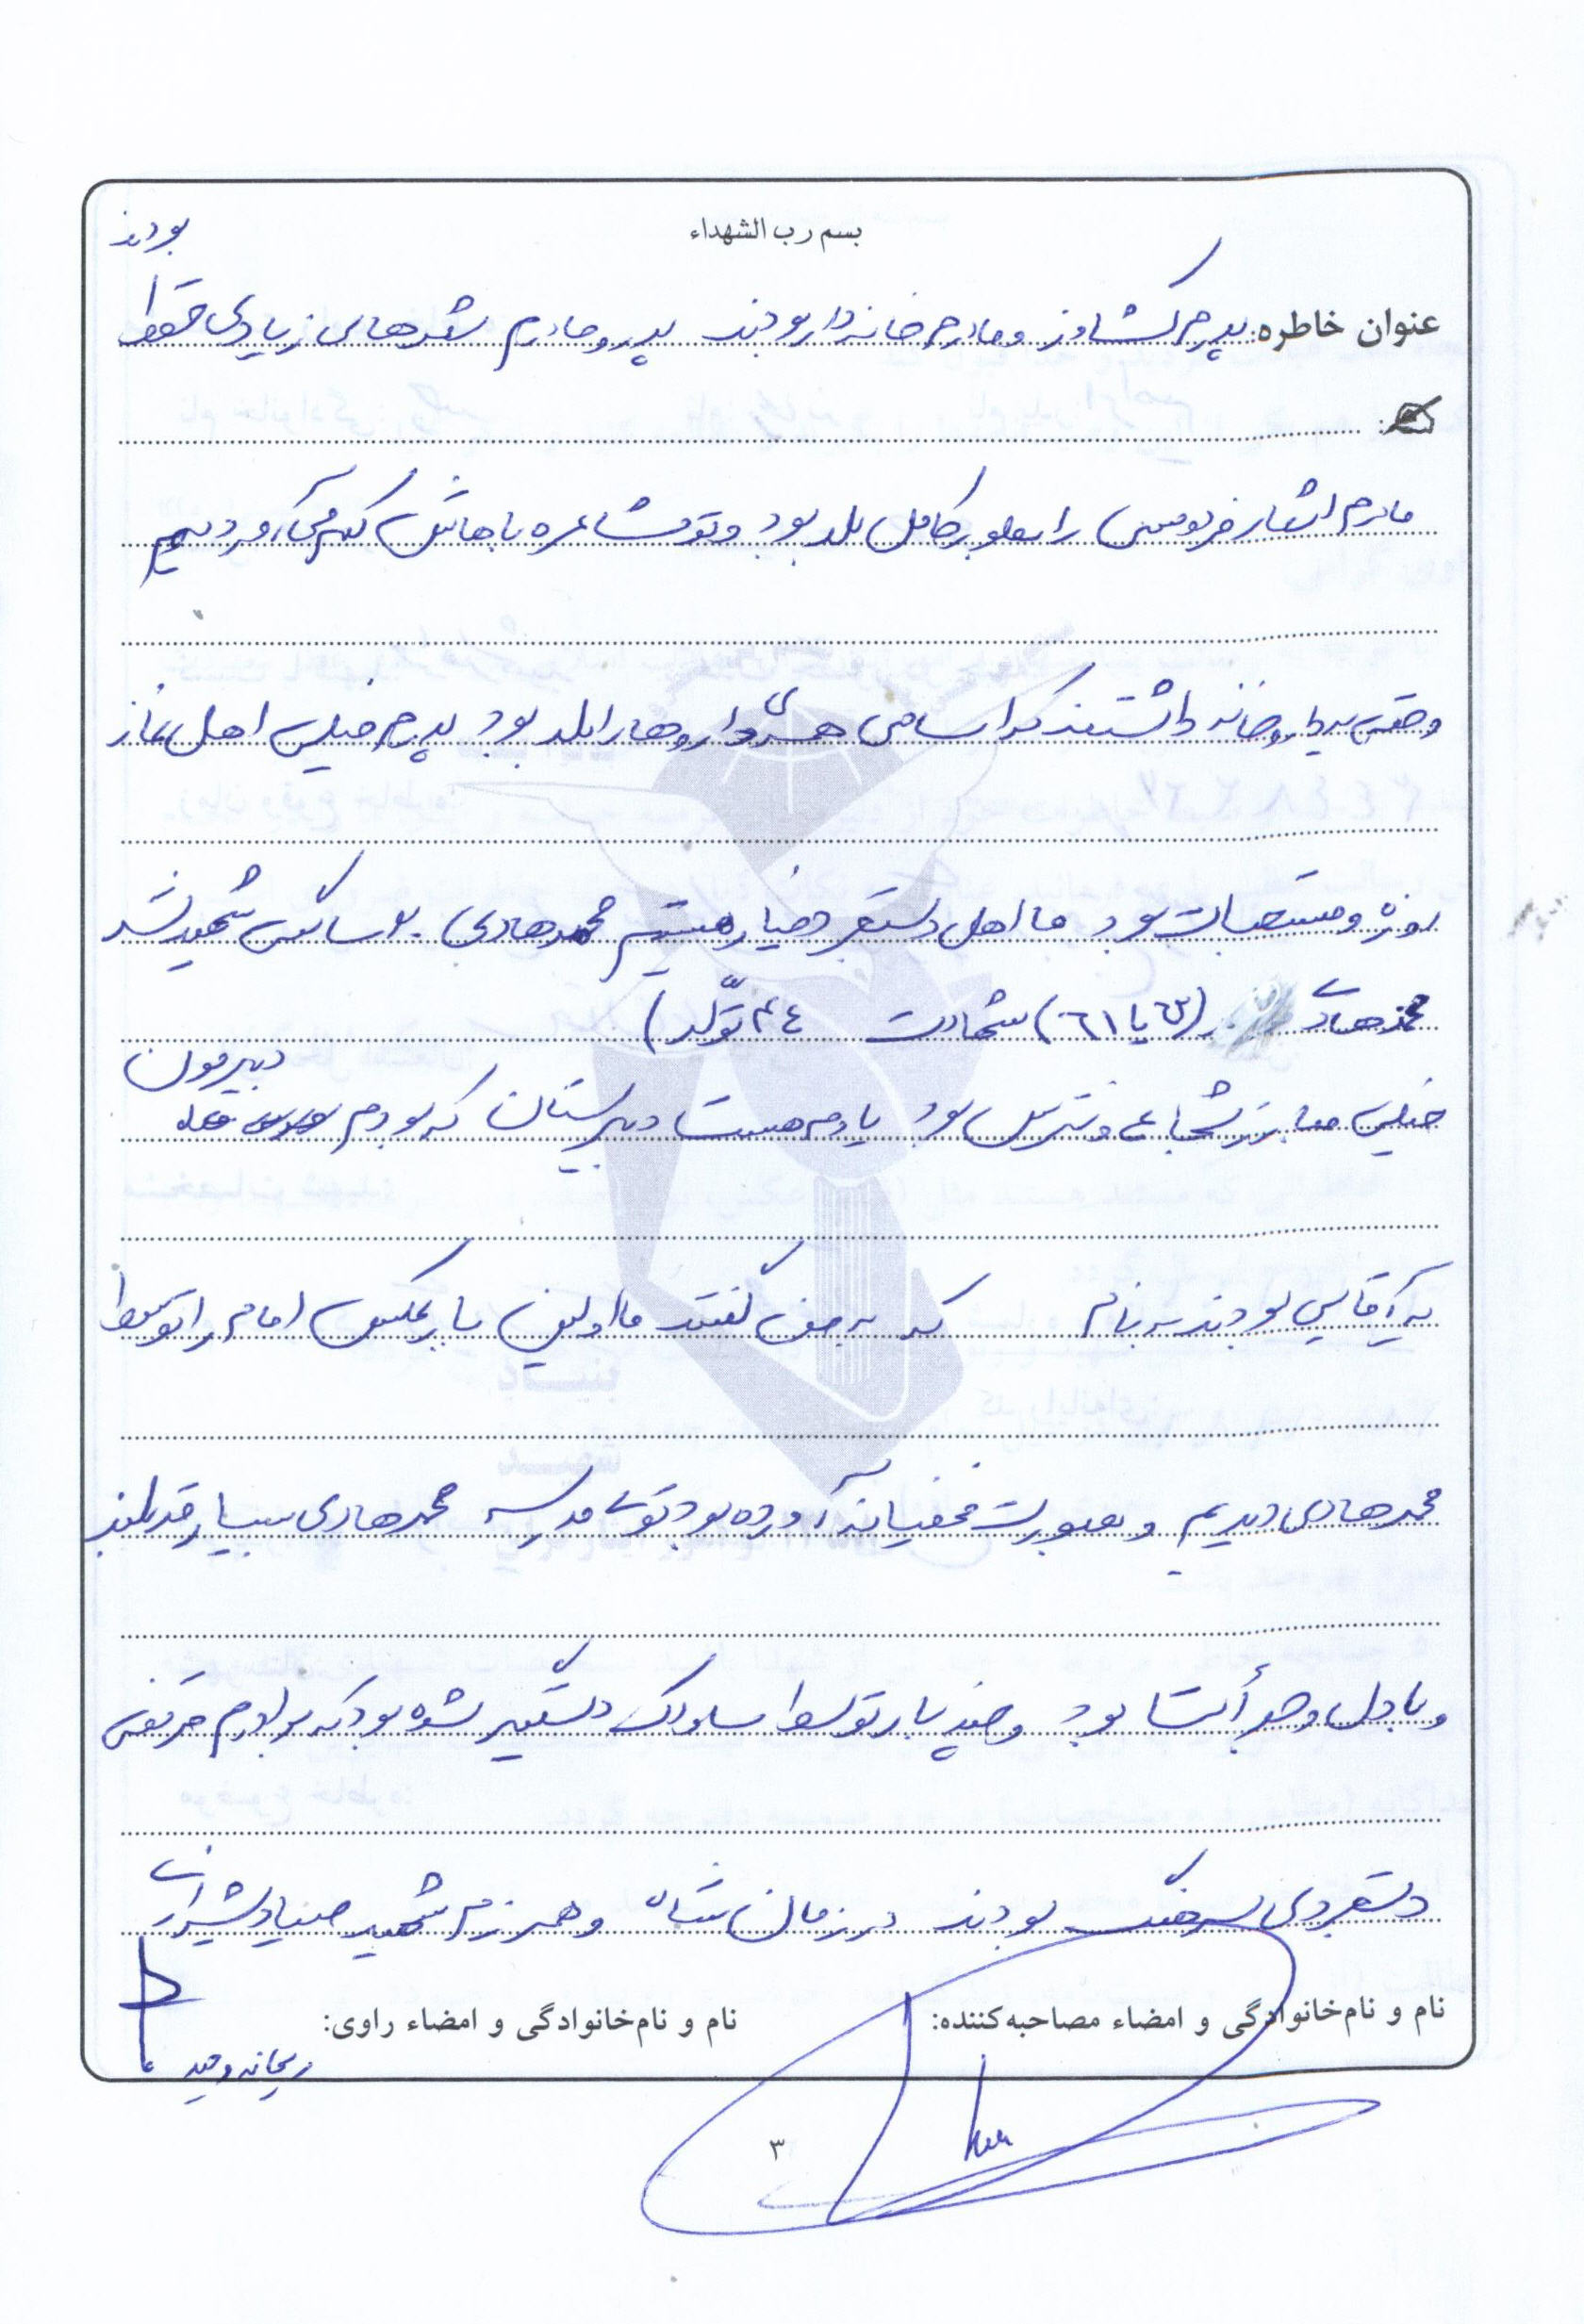 بسم رب الشهداء
بودند
عنوان خاطره: پدرم کشاورز و مادرم خانه دار بودند پدر و مادرم شعرهای زیادی حفظ
مادرم اشعار فردوسی را بطور کامل بلد بود و تو مشاعره باهاش کم می آوردیم
وقتی یه داروخانه داشتند که اسامی همهٔ داروها را بلد بود پدرم خیلی اهل نماز
روزه و مستحبات بود ما اهل دستغرد خیار هستیم محمدهادی ۲۰ سالگی شهید شد
محمدهادی (۶۲ یا ۶۱) شهادت ۴۴ تولّد)
دبیرمون
خیلی مبارز شجاع و نترس بود یادم هست دبیرستان که بودم
یه آقایی بودند به نام که به من گفتند ما اولین بار عکس امام را توسط
محمدهادی دیدیم و بصورت مخفیانه آورده بود توی مدرسه محمدهادی بسیار قدبلند
و با دل و جرأت بود و چند بار توسط ساواک دستگیر شده بود که برادرم مرتضی
دستغردی سرهنگ بودند در زمان شاه و همرزم شهید صیاد شیرازی
نام و نام‌خانوادگی و امضاء مصاحبه‌کننده:
نام و نام‌خانوادگی و امضاء راوی:
ریحانه وحید
۳